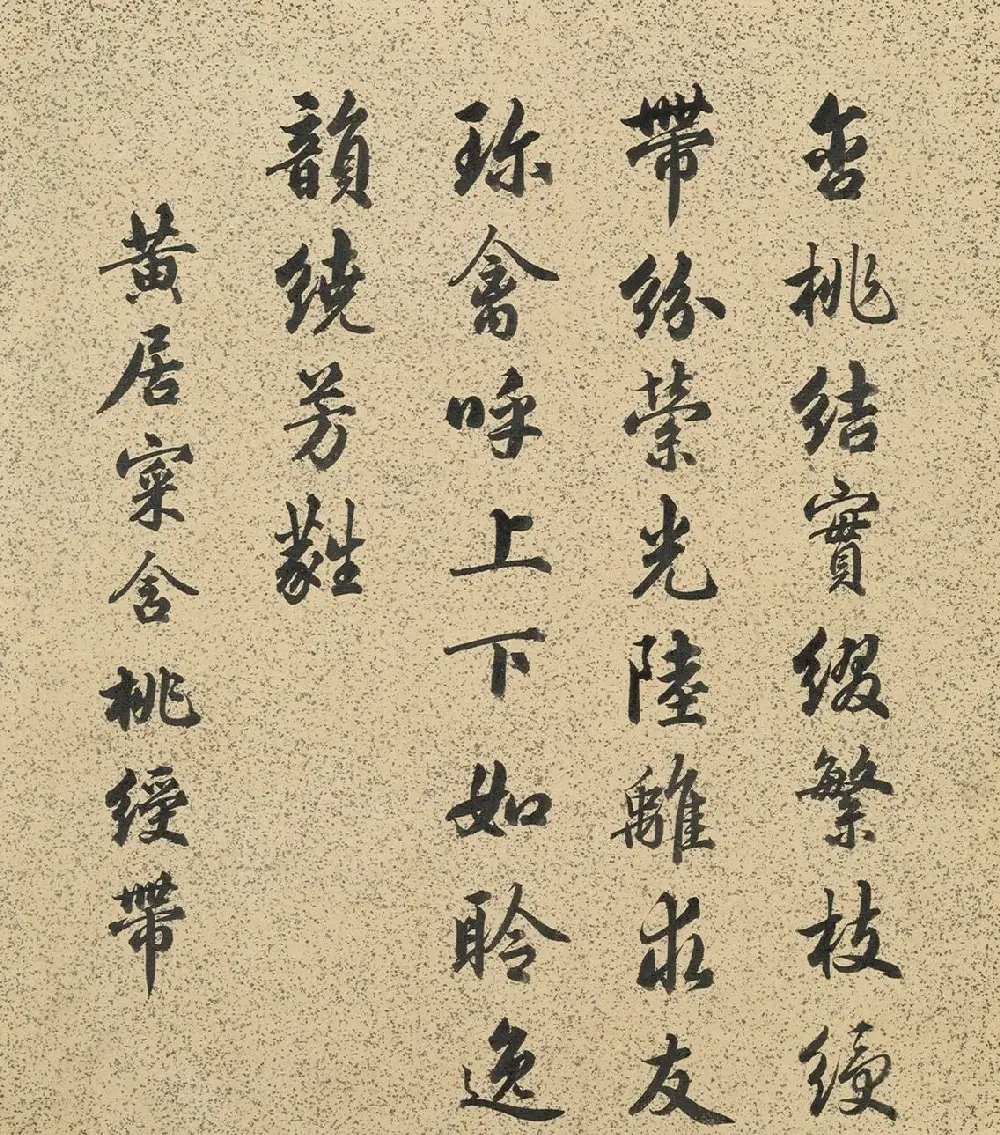 含桃結實綴繁枝綬
帶紛榮光陸離求友
珎禽呼上下如聆逸
韻繞芳蕤
黃居寀含桃綬帶